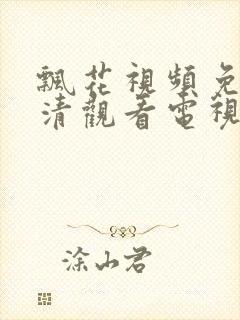 飄花視頻免
清觀看電視
涂山君